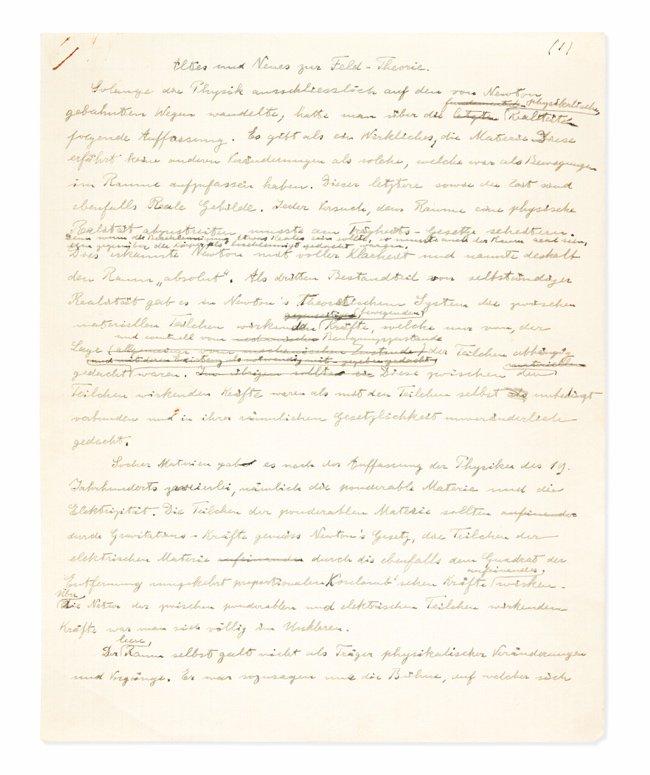 (1)
Altes und Neues zur Feld-Theorie.
Solange die Physik ausschliesslich auf den von Newton
physikalische
gebahnten Wegen wandelte, hatte man über die letzten Realität
folgende Auffassung. Es gibt als ein Wirkliches, die Materie. Diese
erfährt keine anderen Veränderungen als solche, welche wir als Bewegungen
im Raume aufzufassen haben. Dieser letztere sowie die Zeit sind
ebenfalls Reale Gebilde. Jeder Versuch, dem Raume eine physische
Realität abzustreiten musste am Trägheits-Gesetz scheitern.
Denn wenn die Beschleunigung etwas Reales sein sollte, so musste auch der Raum real sein,
Dies erkannte Newton mit voller Klarheit und nannte deshalb
den Raum „absolut“. Als dritten Bestandteil von selbständiger
Realität gab es in Newton's theoretischem System die zwischen
bewegenden
materiellen Teilchen wirkenden Kräfte, welche nur von der
Bewegungszustande
Lage der Teilchen abhängig
gedacht waren. Im übrigen sollten sie Diese zwischen den
Teilchen wirkenden Kräfte waren als mit den Teilchen selbst unbedingt
verbunden und in ihrer räumlichen Gesetzlichkeit unveränderlich
gedacht.
Solcher Materien gab es nach der Auffassung der Physiker des 19.
Jahrhunderts zweierlei, nämlich die ponderable Materie und die
Elektrizität. Die Teilchen der ponderablen Materie sollten aufeinander
durch Gravitations-Kräfte gemäss Newton's Gesetz, die Teilchen der
elektrischen Materie aufeinander durch die ebenfalls dem Quadrat der
aufeinander
Entfernung umgekehrt proportionalen Coulomb'schen Kräfte wirken.
Über
Die Natur der zwischen ponderablen und elektrischen Teilchen wirkenden
Kräfte war man sich völlig im Unklaren.
leere,
Der Raum selbst galt nicht als Träger physikalischer Veränderungen
und Vorgänge. Er war sozusagen nur die Bühne, auf welcher sich